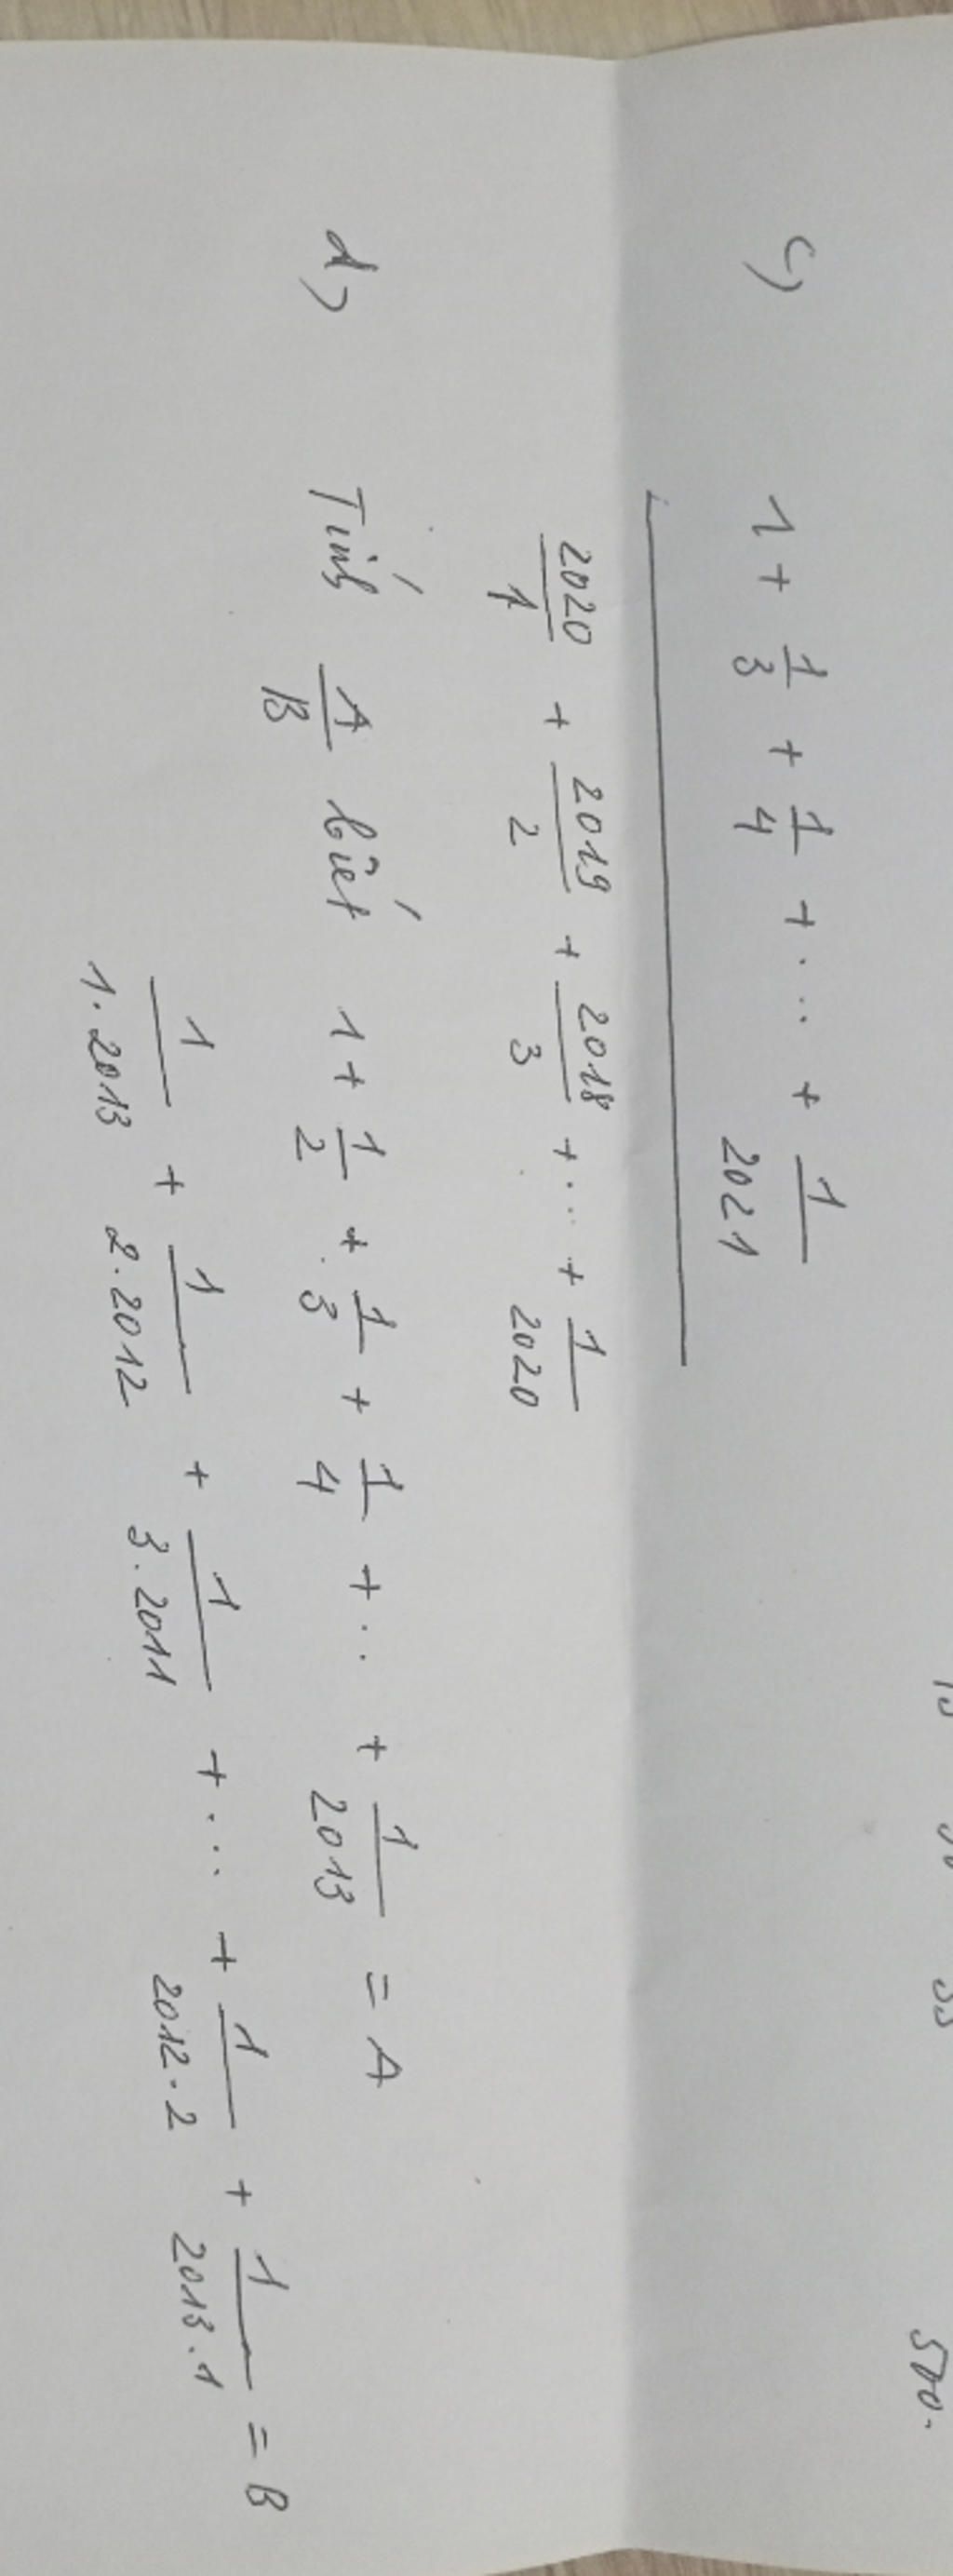 c) 1 + 1/3 + 1/4 + ... + 1/2021
2020/1 + 2019/2 + 2018/3 + ... + 1/2020
d) Tính A/B biết 1 + 1/2 + 1/3 + 1/4 + ... + 1/2013 = A
1/1.2013 + 1/2.2012 + 1/3.2011 + ... + 1/2012.2 + 1/2013.1 = B